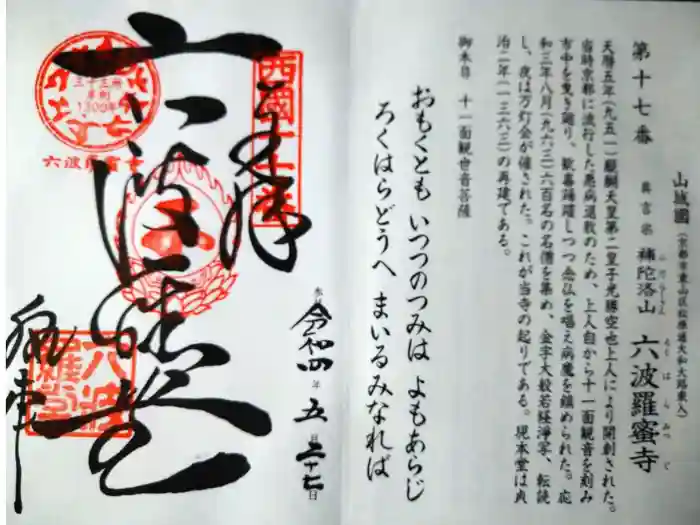 第十七番
山城國(京都市東山区松原通大和大路東入)
真言宗 補陀洛山 六波羅蜜寺
ふだらくさん ろくはらみつじ
天暦五年(九五一)醍醐天皇第二皇子光勝空也上人により開創された。
当時京都に流行した悪病退散のため、上人自から十一面観音を刻み
市中を曳き廻り、歓喜踊躍しつつ念仏を唱え病魔を鎮められた。応
和三年八月(九六三)六百名の名僧を集め、金字大般若経浄写、転読
し、夜は万灯会が催された。これが当寺の起りである。現本堂は貞
治二年(一三六三)の再建である。
御本尊 十一面観世音菩薩
おもくとも いつつのつみは よもあらじ
ろくはらどうへ まいるみなれば
西國十七番
奉拝
六波羅堂
三十三所
草創
1300年
六波羅蜜寺
六波羅堂
令和四年五月二十七日